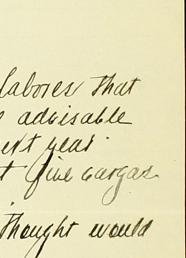 labores that
advisable
ext year
t five cargas
thought would